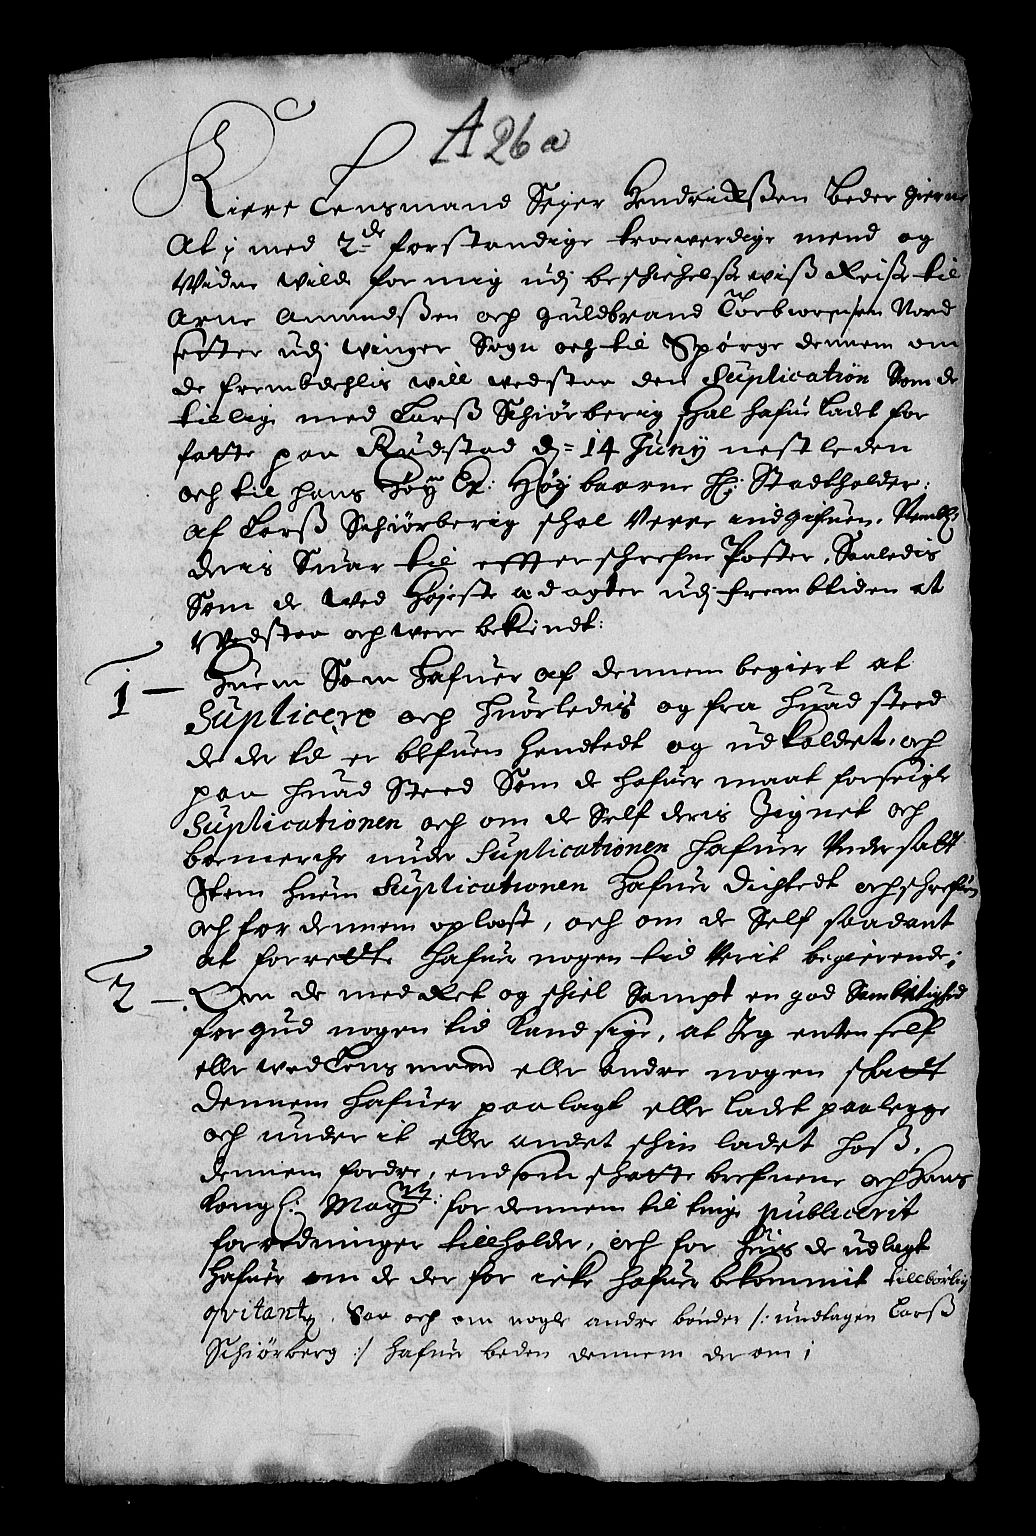 A 26 a
Kiere Lensmand Sejer Hendrichßen beder gierne
At i med 2de forstandige troewerdige mend og
Widne wilde for mig udj beschichelse wiß Reise til
Arne Amundßen och Guldbrand Torbiørensen Nord
setter udj Winger Sogn och til Spørge dennem om
de frembdehlis will vedstaa den Suplication Som de
tillige med Larß Schiørberrig schal hafue ladet for
fatte paa Rudstad d= 14 Juny nestleden
och til hans Høy Ex: Høy baarne H: Stadtholder:
af Larß Schiørberrig schal Vere indgifuen,
deris Suar til effterschrefne Poster, Saaledis
Som de Wed Højeste æd agter udj frembtiden at
Wedstaa och were bekiendt:
1 — Huem Som Hafuer af dennem begiert at
Suplicere och huorledis og fra huad sted
de der til er blefuen hendtedt og udkaldet, och
paa huad Sted Som de hafuer maat forseigle
Suplicationen och om de Self deris Zignet och
bomerche under Suplicationen hafuer Undersatt
Item huem Suplicationen Hafuer dichtedt och schrefuen
och for dennem oplæst, och om de Self saadant
at forrette Hafuer nogen tid Verit begierende;
2 — Om de med Ret og schiel Sampt en god Sambvittighed
for Gud nogen tid Kand sige, at Jeg enten self
eller wed Lensmand eller andre nogen skadt
dennem hafuer paalagt eller ladet paalegge
och under it eller andet schin ladet hoß,
dennem fordre, end som schatte brefuene och Hans
Kongl: Maytz: for dennem til tinge publicerit
forordninger tilholder, och for huis de udlagt
hafuer om de der for icke hafuer bekommit tilbørlig
qvitantz, Saa och om nogle andre bønder /: undtagen Larß
Schiørberg :/ hafuer beden dennem der om i